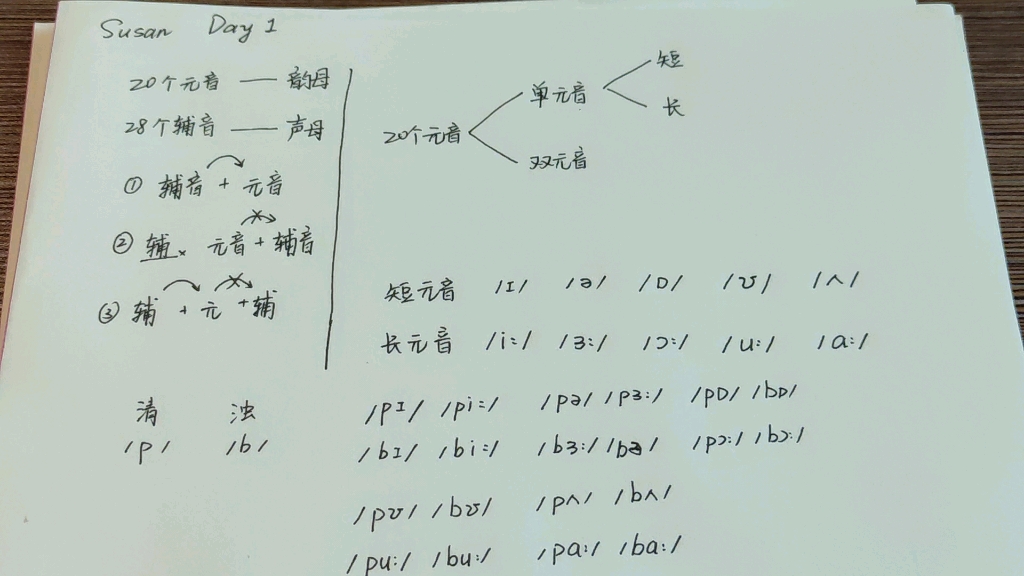 Susan Day 1
20个元音 — 韵母
28个辅音 — 声母
① 辅音 + 元音
② 辅× 元音 + 辅音
③ 辅 + 元 + 辅
20个元音
单元音
短
长
双元音
短元音 /ɪ/ /ə/ /ɒ/ /ʊ/ /ʌ/
长元音 /i:/ /ɜ:/ /ɔ:/ /u:/ /ɑ:/
清 浊
/p/ /b/
/pɪ/ /pi:/ /pə/ /pɜ:/ /pɒ/ /bɒ/
/bɪ/ /bi:/ /bɜ:/ /bə/ /pɔ:/ /bɔ:/
/pʊ/ /bʊ/ /pʌ/ /bʌ/
/pu:/ /bu:/ /pɑ:/ /bɑ:/